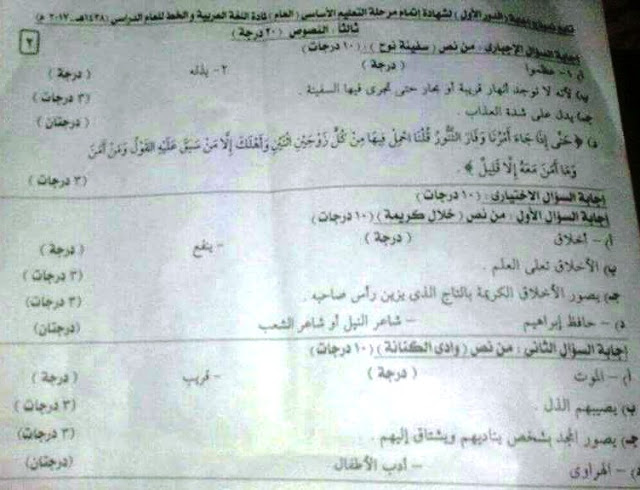 تابع نموذج إجابة (الدور الأول) لشهادة إتمام مرحلة التعليم الأساسي (العام) لمادة اللغة العربية و الخط للعام الدراسي (١٤٣٨هـ - ٢٠١٧ م)
٢
ثالثًا : النصوص (٢٠ درجة)
إجابة السؤال الإجبارى : من نص ( سفينة نوح ) : (١٠ درجات)
أ) ١- عظموا ( درجة ) ٢- يذله ( درجة )
ب) لأنه لا توجد أنهار قريبة أو بحار حتى تجرى فيها السفينة . (٣ درجات )
جـ) يدل على شدة العذاب . ( درجتان )
د) ﴿ حَتَّى إِذَا جَاءَ أَمْرُنَا وَفَارَ التَّنُّورُ قُلْنَا احْمِلْ فِيهَا مِنْ كُلٍّ زَوْجَيْنِ اثْنَيْنِ وَأَهْلَكَ إِلَّا مَنْ سَبَقَ عَلَيْهِ الْقَوْلُ وَمَنْ آمَنَ
وَمَا آمَنَ مَعَهُ إِلَّا قَلِيلٌ ﴾ . (٣ درجات )
إجابة السؤال الاختيارى : (١٠ درجات)
إجابة السؤال الأول : من نص ( خلال كريمة ) (١٠ درجات)
أ) - أخلاق ( درجة ) - ينفع ( درجة )
ب) الأخلاق تعلى العلم . (٣ درجات )
جـ) يصور الأخلاق الكريمة بالتاج الذى يزين رأس صاحبه . (٣ درجات)
د) - حافظ إبراهيم - شاعر النيل أو شاعر الشعب (درجتان)
إجابة السؤال الثانى : من نص ( وادى الكنانة ) (١٠ درجات)
أ) - الموت ( درجة ) - قريب ( درجة )
ب) يصيبهم الذل . (٣ درجات )
جـ) يصور المجد بشخص يناديهم ويشتاق إليهم . (٣ درجات)
د) - الهراوى - أدب الأطفال (درجتان)